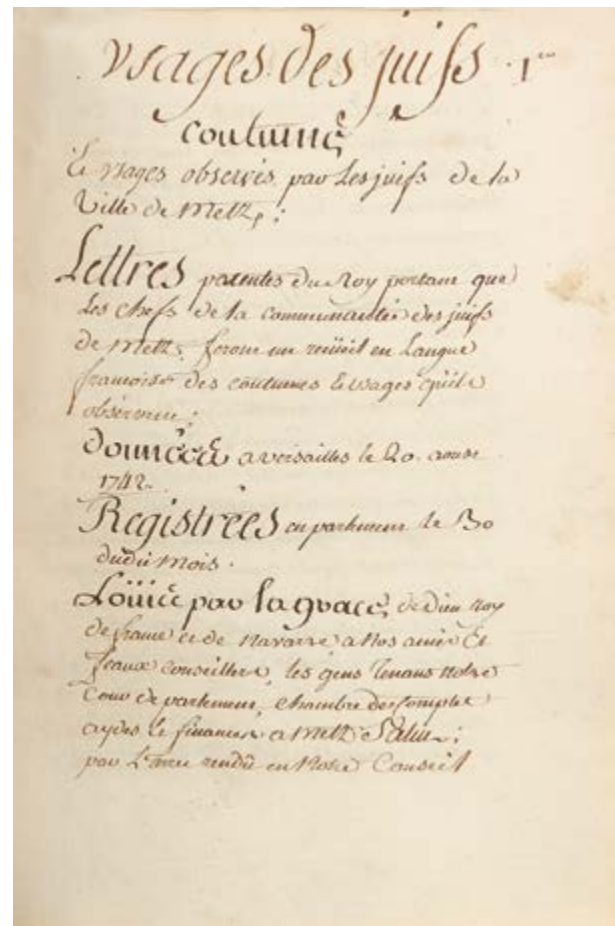 Usages des juifs. 1er
coutumes
Et usages observés par Les juifs de la
Ville de Metz;
Lettres patentes du Roy portant que
Les chefs de la communautée des juifs
de Metz, feront un reciieil en Langue
francoise des coutumes & usages qu'ils
observent;
Données a versailles le 20. aoust
1742.
Registrées en parlement le 30
dudit Mois.
Loüis par la grace, de Dieu Roy
de france et de Navarre a Nos amés Et
feaux conseillers, les gens tenans notre
Cour de parlement, Chambre des Comptes
aydes & finances a Metz Salut;
par L'arrest rendu en Notre Conseil